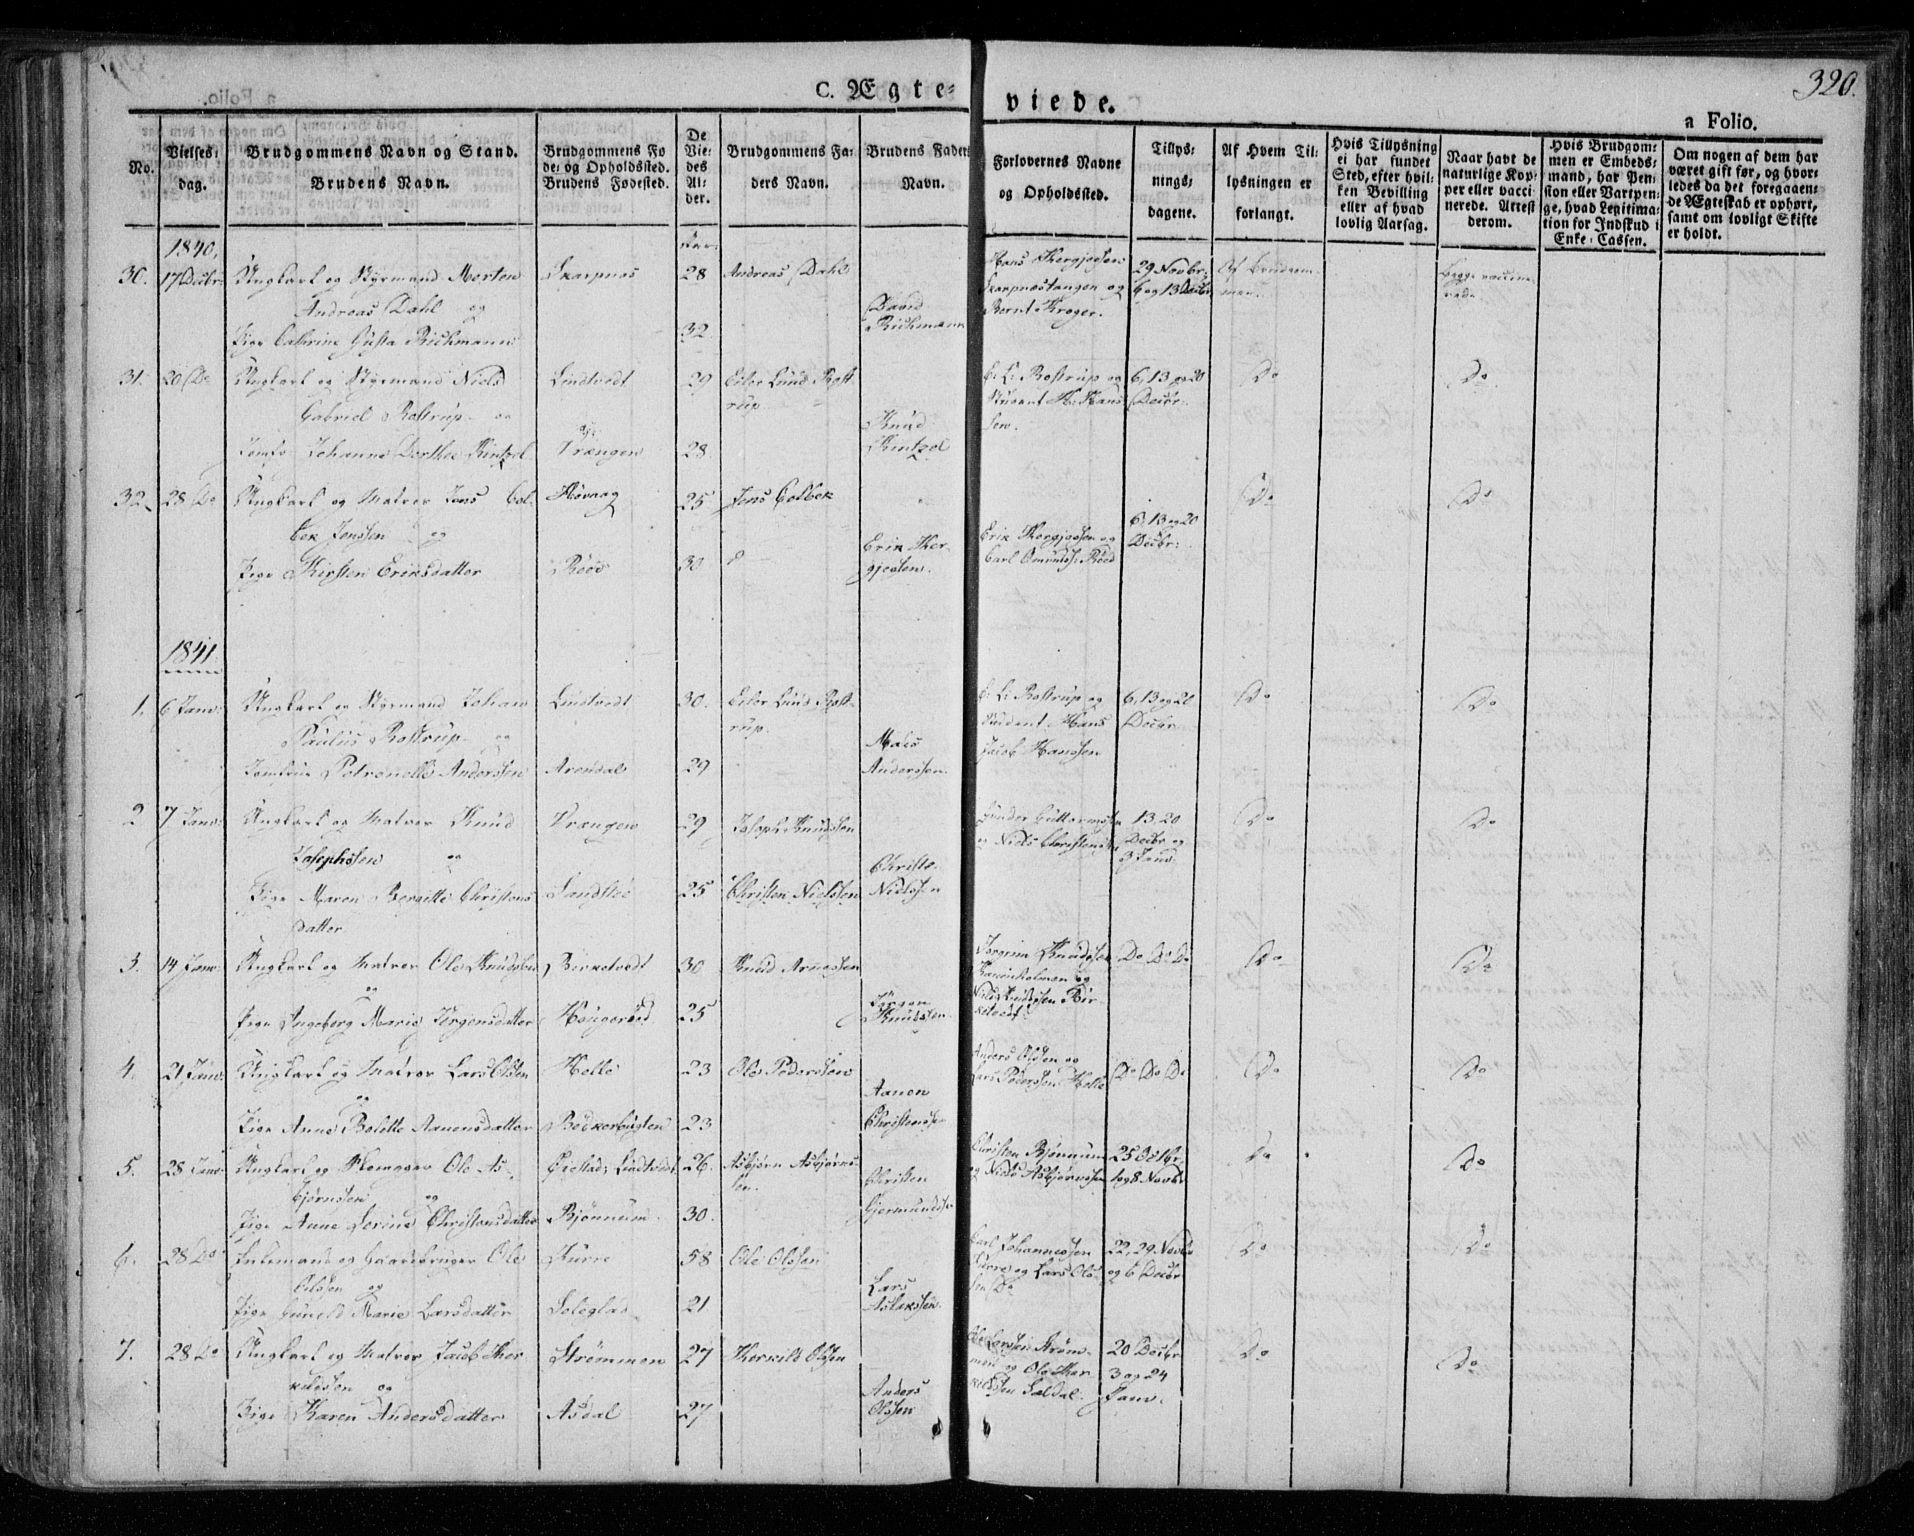 320.
C. Ægteviede.
a Folio.
No.
Vielsesdag.
Brudgommens Navn og Stand.
Brudens Navn.
Brudgommens Fode- og Opholdssted.
Brudens Fødested.
De Viedes Alder.
Brudgommens Faders Navn.
Brudens Faders Navn.
Forlovernes Navne og Opholdssted.
Tillysningsdagene.
Af Hvem Tillysningen er forlangt.
Hvis Tillysning ei har fundet Sted, efter hvilken Bevilling eller af hvad lovlig Aarsag.
Naar havt de naturlige Kopper eller vaccinerede. Attest derom.
Hvis Brudgommen er Embedsmand, har Pension eller Vartpenge, hvad Legitimation for Indskud i Enke-Cassen.
Om nogen af dem har været gift før, og hvorledes da det foregaaende Ægteskab er ophørt, samt om lovligt Skifte er holdt.
1840,
30. 17 Decbr: Ungkarl og Styrmand Morten Skarpnes 28 Andreas Dahl
Andreas Dahl og
Pige Cathrine Gusta Richmann 32 David Richmann
Hans Thergjesen Skarpnestangen og Bernt Krøger. 29 Novbr: 6 og 13 Decbr Af Brudgommen. Begge vaccinerede
31. 20 Do Ungkarl og Styrmand Niels Lindtvedt 29 Eiler Lund Rostrup
Gabriel Rostrup og
Jomfr Johanne Dorthea Kintzel Vrængen 28 Knud Kintzel
E: L: Rostrup og Student H: Hanssen. 6, 13 og 20 Decbr: Do Do
32. 28 Do Ungkarl og Matros Jens Colbek Høvaag 25 Jens Colbek
Jenssen og
Pige Kirsten Eriksdatter 30 Erik Thergjesen.
Erik Thergjesen og Carl Omunds: 6, 13 og 20 Decbr: Do Do
1841
1. 6 Janr: Ungkarl og Styrmand Johan Lindtvedt 30. Eiler Lund Rostrup.
Paulus Rostrup og
Jomfrue Petronelle Anderssen Arendal 29 Mads Anderssen.
E: L: Rostrup og Student Hans Jacob Hanssen 6, 13 og 20 Decbr Do Do
2 7 Janr: Ungkarl og Matros Knud Vrængen 29 Joseph Knudssen
Josephssen og
Pige Maren Bergitte Christensdatter Sandstøe 25 Christen Nielssen Christen Nielssen
Gunder Guttormsen og Niels Christens: 13, 20 Decbr og 3 Janr: Do Do
3. 14 Janr: Ungkarl og Matros Ole Knudssen Birketvedt 30 Knud Arnessen
og
Pige Ingeborg Marie Jørgensdatter 25 Jørgen Knudssen.
Jørgen Knudssen og Niels Knudssen Birketvedt Do Do Do Do Do
4. 21 Janr: Ungkarl og Matros Lars Olssen Helle 23 Ole Pederssen
og
Pige Anne Bolette Aanensdatter Bødkerbugten 23 Aanen Christenssen
Anders Olssen og Lars Pederssen Helle Do Do Do Do Do
5. 28 Janr: Ungkarl og Ole Asbjørnssen Lindtvedt 26. Asbjørn Asbjørnssen.
og
Pige Anne Serine Christensdatter Bjønnum 30. Christen Gjermundsen
Christen Bjønnum og Niels Asbjørnssen 25 Octbr 1 og 8 Novbr Do Do
6. 28 Do Enkemand og Gaardbruger Ole Sturre 58 Ole Olssen
Olssen og
Pige Gunild Marie Larsdatter Soleglad 21 Lars Aslakssen.
Carl Johannessen Sturre og Lars Olssen Do 22, 29 Novbr og 6 Decbr Do Do
7. 28 Do Ungkarl og Matros Jacob Therkildssen Strømmen 27 Therkild Olssen
og
Pige Karen Andersdatter Asdal 27 Anders Olssen
Ole Larssen Strømmen og Ole Therkildssen Saldal. 20 Decbr 3 og 24 Janr. Do Do